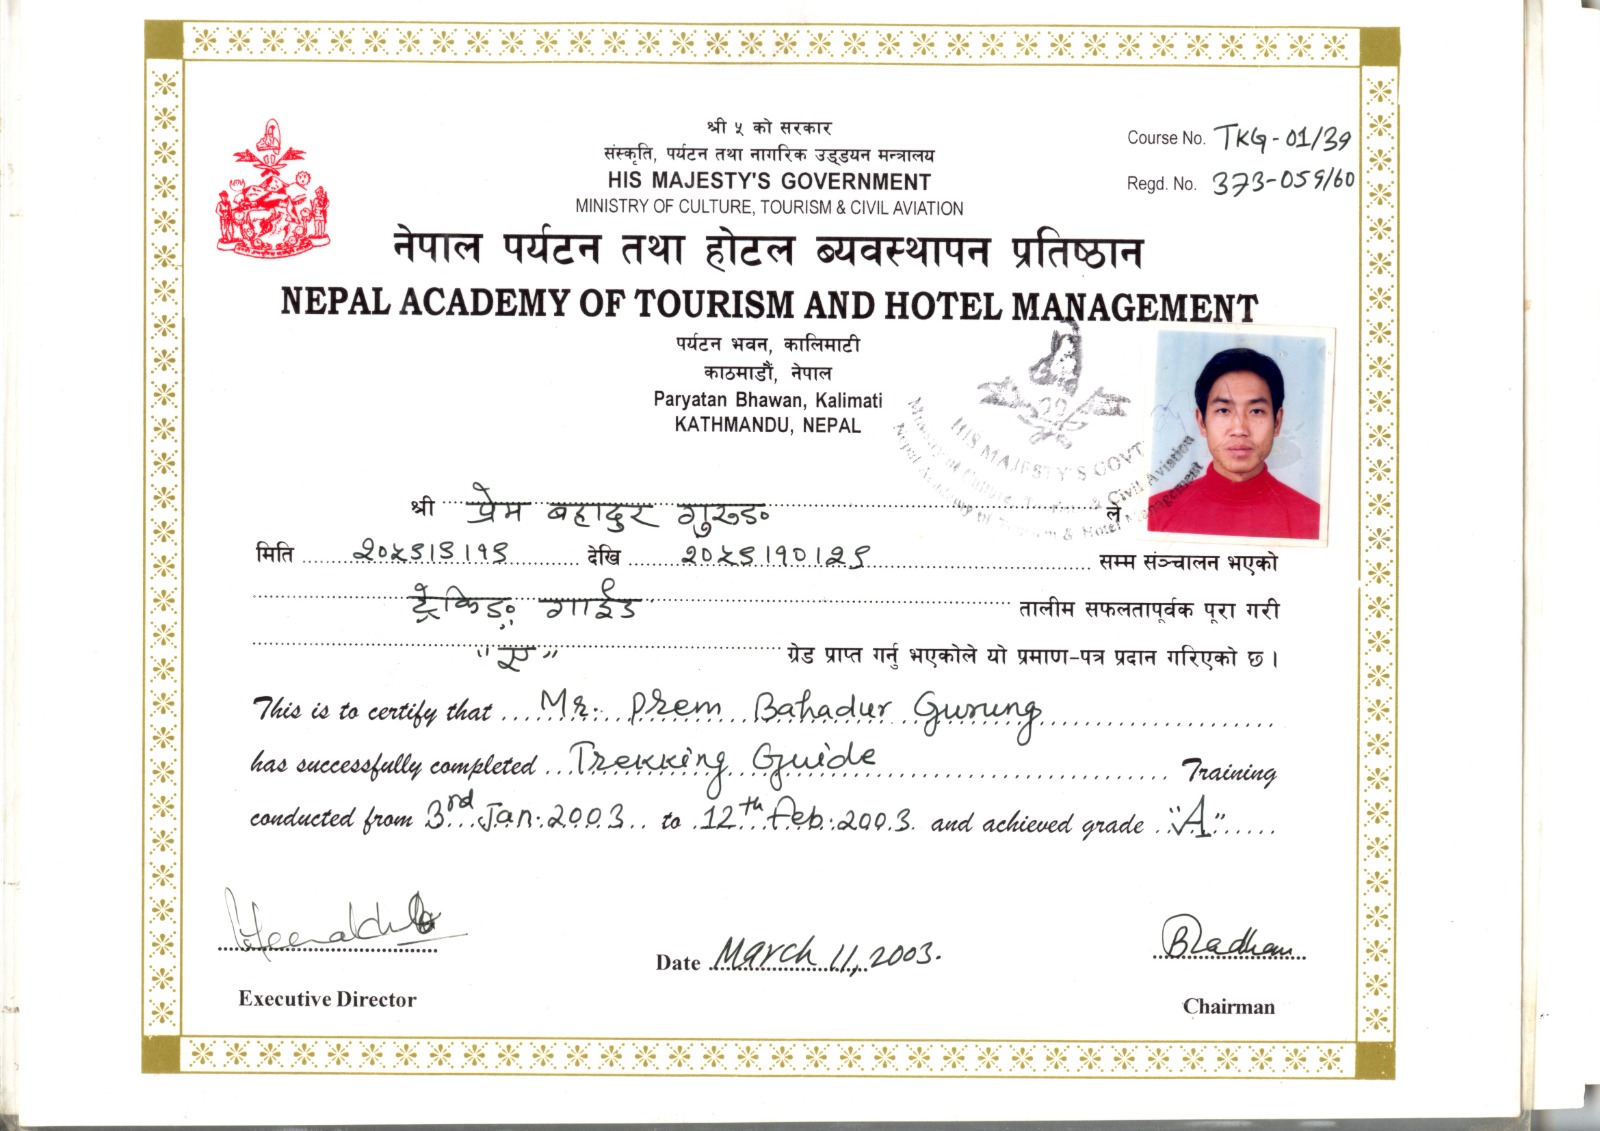 श्री ५ को सरकार
संस्कृति, पर्यटन तथा नागरिक उड्डयन मन्त्रालय
HIS MAJESTY'S GOVERNMENT
MINISTRY OF CULTURE, TOURISM & CIVIL AVIATION
Course No. TKG-01/39
Regd. No. 373-059/60
नेपाल पर्यटन तथा होटल ब्यवस्थापन प्रतिष्ठान
NEPAL ACADEMY OF TOURISM AND HOTEL MANAGEMENT
पर्यटन भवन, कालिमाटी
काठमाडौं, नेपाल
Paryatan Bhawan, Kalimati
KATHMANDU, NEPAL
HIS MAJESTY'S GOVT
Ministry of Culture, Tourism & Civil Aviation
Nepal Academy of Tourism & Hotel Management
श्री प्रेम बहादुर गुरुङ ले
मिति २०५९।९।१९ देखि २०५९।१०।२९ सम्म संञ्चालन भएको
ट्रेकिङ गाईड तालीम सफलतापूर्वक पूरा गरी
"ए" ग्रेड प्राप्त गर्नु भएकोले यो प्रमाण-पत्र प्रदान गरिएको छ ।
This is to certify that Mr. Prem Bahadur Gurung
has successfully completed Trekking Guide Training
conducted from 3rd Jan. 2003 to 12th Feb. 2003 and achieved grade "A"
Date March 11, 2003.
Executive Director
Chairman